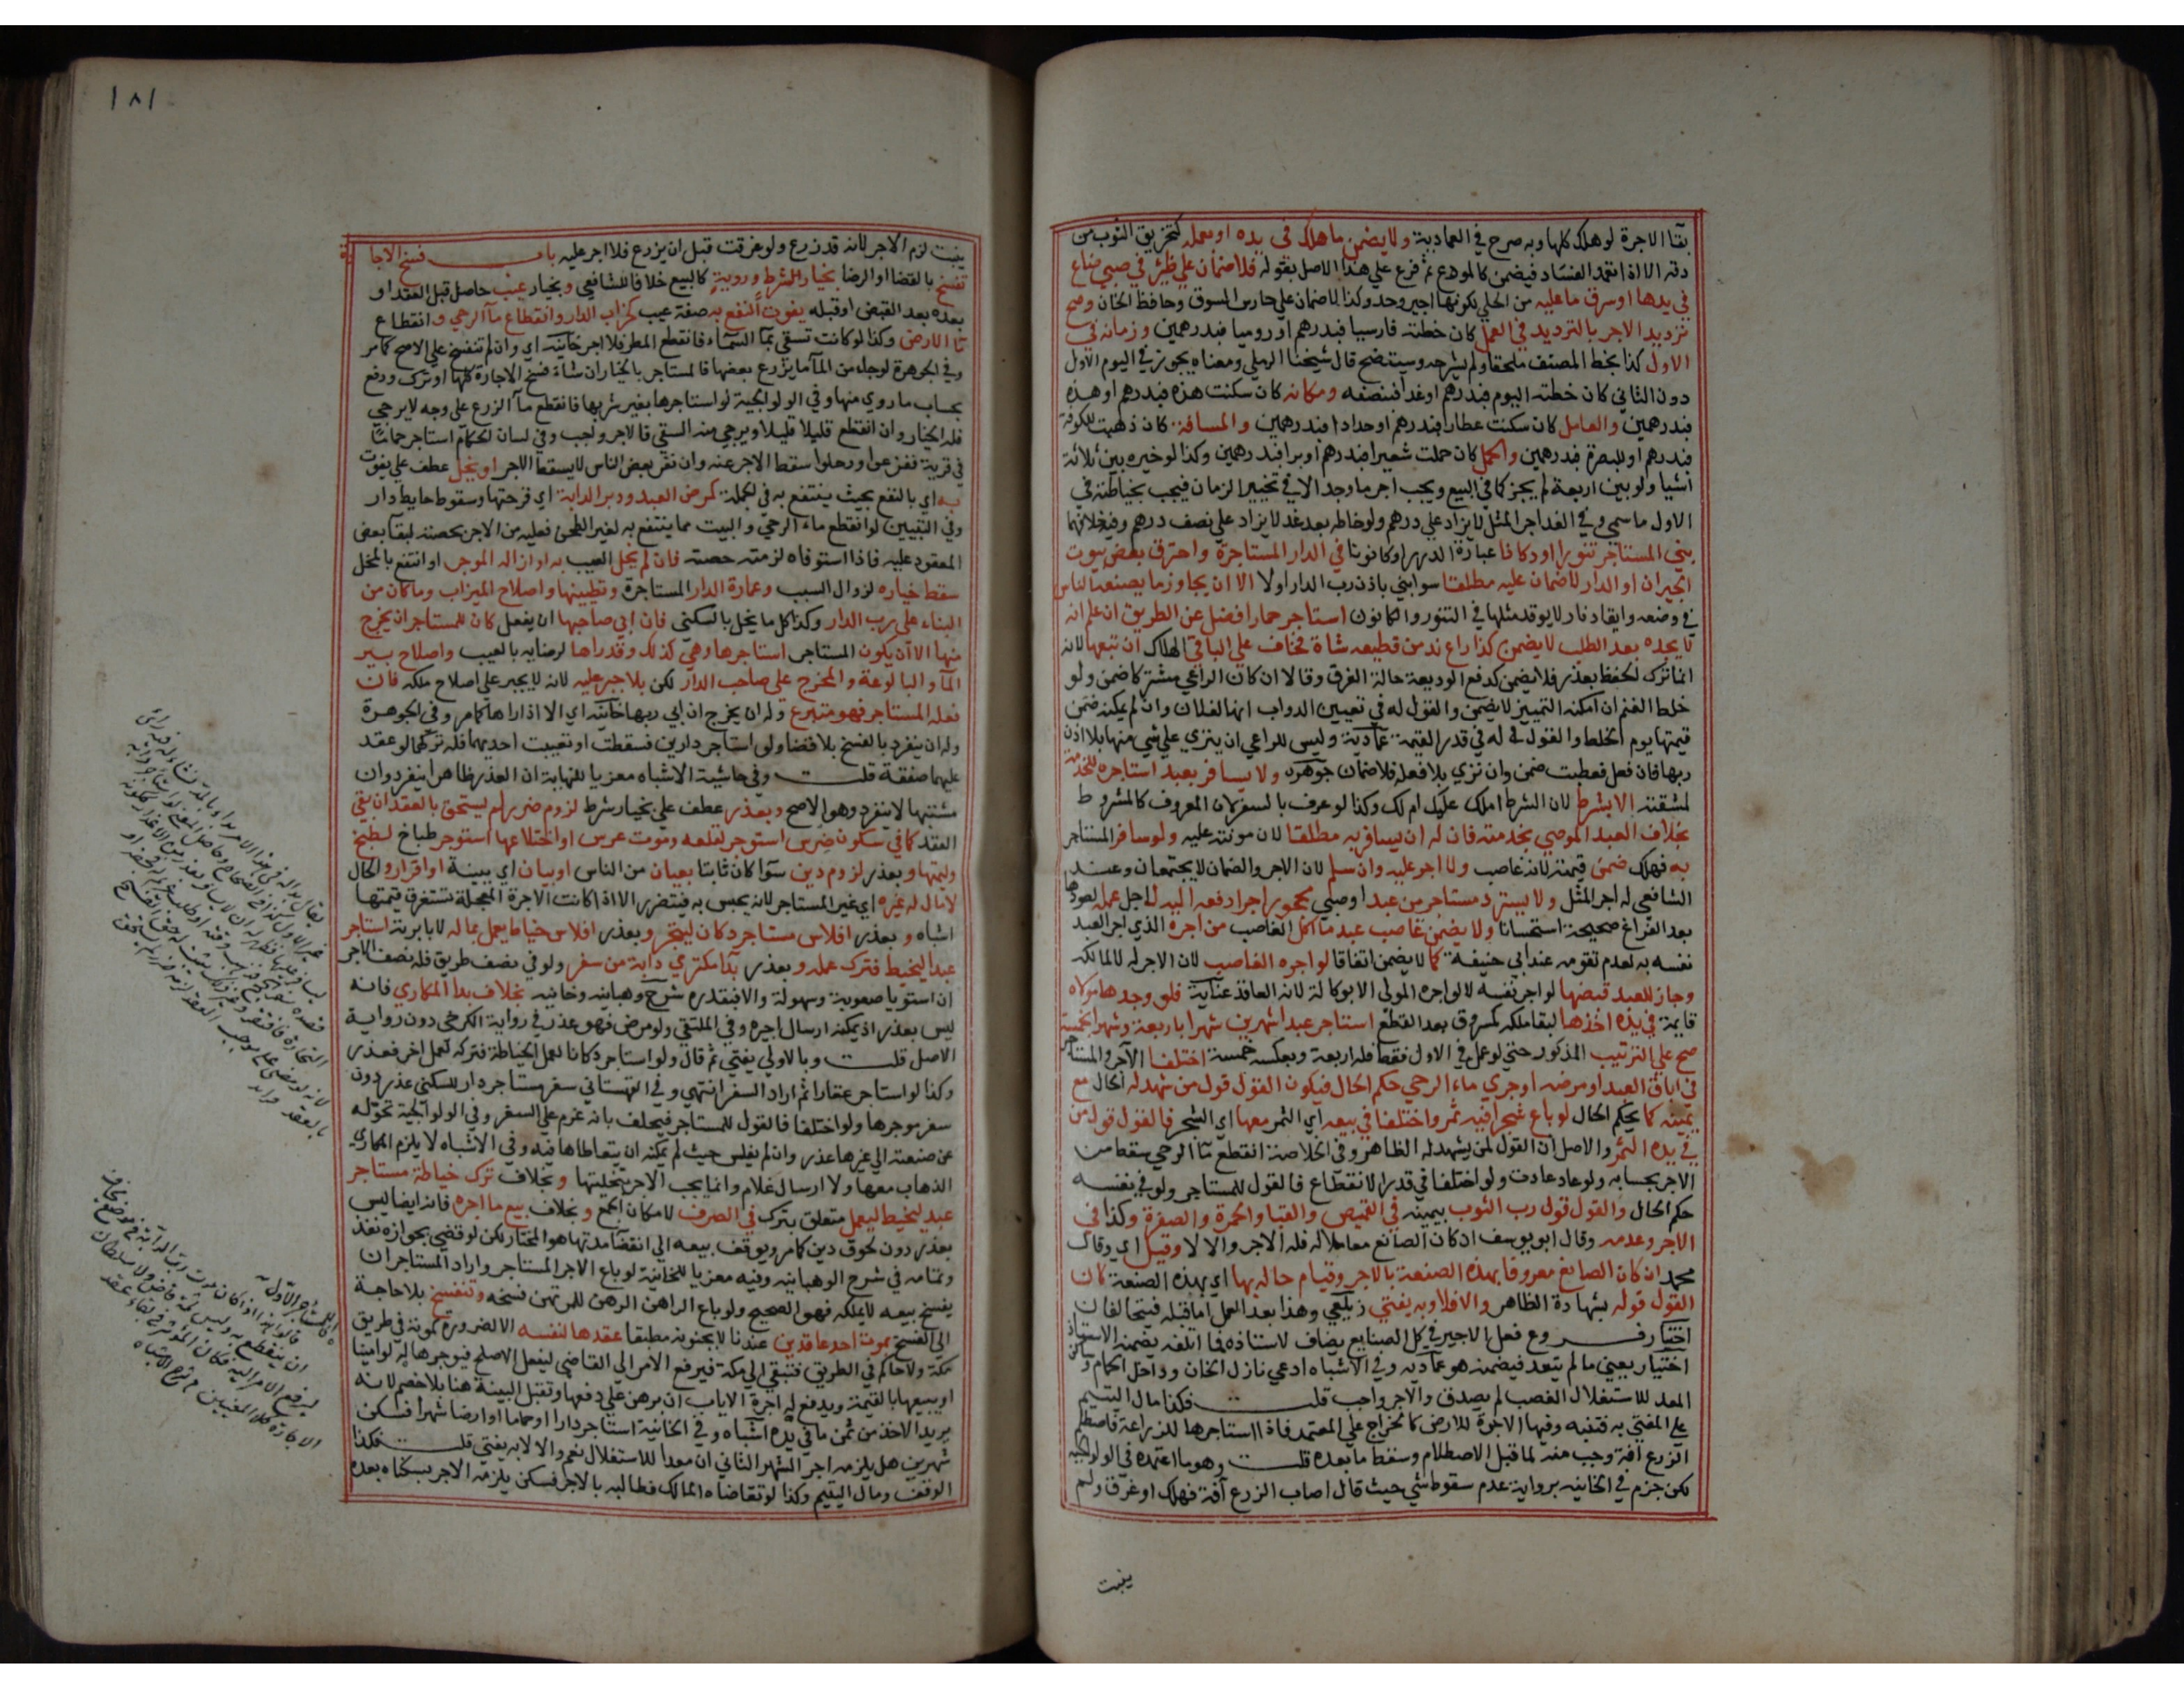 بقا الاجرة لو هلك كلها وبه صرح في العمادية ولا يضمن ما هلك في يده او بعمله كتخريق الثوب من
دقه الا اذا تعمد الفساد فيضمن كالمودع ثم فرع علي هذا الاصل بقوله فلا ضمان علي ظئر في صبي ضاع
في يدها او سرق ما عليه من الحلي لكونها اجير وحد وكذا لا ضمان علي حارس السوق وحافظ الخان وصح
ترديد الاجر بالترديد في العمل كان خطته فارسيا فبدرهم او روميا فبدرهمين وزمانه في
الاول كذا بخط المصنف ملحقا ولم يشرحه وسيتضح قال شيخنا الرملي ومعناه يجوز في اليوم الاول
دون الثاني كان خطته اليوم فبدرهم او غدا فبنصفه ومكانه كان سكنت هذه فبدرهم او هذه
فبدرهمين والعامل كان سكنت عطارا فبدرهم او حدادا فبدرهمين والمسافة كان ذهبت للكوفة
فبدرهم او للبصرة فبدرهمين والحمل كان حملت شعيرا فبدرهم او برا فبدرهمين وكذا لو خيره بين ثلاثة
اشيا ولو بين اربعة لم يجز كما في البيع ويجب اجر ما وجد الا في تخيير الزمان فيجب بخياطته في
الاول ما سمي وفي الغد اجر المثل لا يزاد علي درهم ولو خاطه بعد غد لا يزاد علي نصف درهم وفيه خلافهما
بني المستاجر تنورا او دكانا عبارة الدرر او كانونا في الدار المستاجرة واحترق بعض بيوت
الجيران او الدار لا ضمان عليه مطلقا سوا بني باذن رب الدار او لا الا ان يجاوز ما يصنعه الناس
في وضعه وايقاد نار لا يوقد مثلها في التنور والكانون استاجر حمارا فضل عن الطريق ان علم انه
لا يجده بعد الطلب لا يضمن كذا راع ند من قطيعه شاة فخاف علي الباقي الهلاك ان تبعها لانه
انما ترك الحفظ بعذر فلا يضمن كدفع الوديعة حالة الغرق وقالا ان كان الراعي مشتركا ضمن ولو
خلط الغنم ان امكنه التمييز لا يضمن والقول له في تعيين الدواب انها لفلان وان لم يمكنه ضمن
قيمتها يوم الخلط والقول له في قدر القيمة عمادية وليس للراعي ان ينزي علي شي منها بلا اذن
ربها فان فعل فعطبت ضمن وان نزي بلا فعله فلا ضمان جوهره ولا يسافر بعبد استاجره للخدمة
لمشقته الا بشرط لان الشرط املك عليك ام لك وكذا لو عرف بالسفر لان المعروف كالمشروط
بخلاف العبد الموصي بخدمته فان له ان يسافر به مطلقا لان مونته عليه ولو سافر المستاجر
به فهلك ضمن قيمته لانه غاصب ولا اجر عليه وان سلم لان الاجر والضمان لا يجتمعان وعند
الشافعي له اجر المثل ولا يسترد مستاجر من عبد او صبي محجور اجرا دفعه اليه لاجل عمله لعودها
بعد الفراغ صحيحة استحسانا ولا يضمن غاصب عبد ما اكل الغاصب من اجره الذي اجر العبد
نفسه به لعدم تقومه عند ابي حنيفة كما لا يضمن اتفاقا لو اجره الغاصب لان الاجر له لا لمالكه
وجاز للعبد قبضها لو اجر نفسه لا لو اجره المولي الا بوكالة لانه العاقد عناية فلو وجدها مولاه
قايمة في يده اخذها لبقا ملكه كمسروق بعد القطع استاجر عبدا شهرين شهرا باربعة وشهرا بخمسة
صح علي الترتيب المذكور حتي لو عمل في الاول فقط فله اربعة وبعكسه خمسة اختلفا الآجر والمستاجر
في اباق العبد او مرضه او جري ماء الرحي حكم الحال فيكون القول قول من شهد له الحال مع
يمينه كما يحكم الحال لو باع شجرا فيه ثمر واختلفا في بيعه اي الثمر معها اي الشجر فالقول قول من
في يده الثمر والاصل ان القول لمن يشهد له الظاهر وفي الخلاصة انقطع ما الرحي سقط من
الاجر بحسابه ولو عاد عادت ولو اختلفا في قدر الانقطاع فالقول للمستاجر ولو في نفسه
حكم الحال والقول قول رب الثوب بيمينه في القميص والقبا والحمرة والصفرة وكذا في
الاجر وعدمه وقال ابو يوسف ان كان الصانع معاملا له فله الاجر والا لا وقيل اي وقال
محمد ان كان الصانع معروفا بهذه الصنعة بالاجر وقيام حاله بها اي بهذه الصنعة كان
القول قوله بشهادة الظاهر والا فلا وبه يفتي زيلعي وهذا بعد العمل اما قبله فيتحالفان
اختيار فروع فعل الاجير في كل الصنايع يضاف لاستاذه فما اتلفه يضمنه الاستاذ
اختيار يعني ما لم يتعد فيضمنه هو عماديه وفي الاشباه ادعي نازل الخان وداخل الحمام وساكن
المعد للاستغلال الغصب لم يصدق والاجر واجب قلت فكذا مال اليتيم
علي المفتي به فتنبه وفيها الاجرة للارض كالخراج علي المعتمد فاذا استاجرها للزراعة فاصطلم
الزرع آفة وجب منه لما قبل الاصطلام وسقط ما بعده قلت وهو ما اعتمده في الولوالجيه
لكن جزم في الخانيه برواية عدم سقوط شي حيث قال اصاب الزرع آفة فهلك او غرق ولم
ينبت
١٨١
ينبت لزم الاجر لانه قد زرع ولو غرقت قبل ان يزرع فلا اجر عليه باب فسخ الاجارة
تفسخ بالقضا او الرضا بخيار الشرط وروية كالبيع خلافا للشافعي وبخيار عيب حاصل قبل العقد او
بعده بعد القبض او قبله يفوت النفع به صفة عيب كخراب الدار وانقطاع ماآ الرحي وانقطاع
ماآ الارض وكذا لو كانت تسقي بمآ السمآء فانقطع المطر فلا اجر خانيه اي وان لم تنفسخ علي الاصح كما مر
وفي الجوهرة لو جاء من المآ ما يزرع بعضها فالمستاجر بالخيار ان شاء فسخ الاجارة كلها او ترك ودفع
بحساب ما روي منها وفي الولوالجية لو استاجرها بغير شربها فانقطع مآ الزرع علي وجه لا يرجي
فله الخيار وان انقطع قليلا قليلا ويرجي منه السقي فالاجر واجب وفي لسان الحكام استاجر حماما
في قرية ففزعوا ورحلوا سقط الاجر عنه وان نفر بعض الناس لا يسقط الاجر او يخل عطف علي يفوت
به اي بالنفع بحيث ينتفع به في الجملة كمرض العبد ودبر الدابة اي قرحتها وسقوط حايط دار
وفي التبيين لو انقطع ماء الرحي والبيت مما ينتفع به لغير الطحن فعليه من الاجر بحصته لبقآ بعض
المعقود عليه فاذا استوفاه لزمته حصته فان لم يخل العيب به او ازاله الموجر او انتفع بالمخل
سقط خياره لزوال السبب وعمارة الدار المستاجرة وتطيينها واصلاح الميزاب وما كان من
البناء علي رب الدار وكذا كل ما يخل بالسكني فان ابي صاحبها ان يفعل كان للمستاجر ان يخرج
منها الا ان يكون المستاجر استاجرها وهي كذلك وقد راها لرضايه بالعيب واصلاح بير
المآ والبالوعة والمخرج علي صاحب الدار لكن بلا جبر عليه لانه لا يجبر علي اصلاح ملكه فان
فعله المستاجر فهو متبرع وله ان يخرج ان ابي ربها خانيه اي الا اذا راها كما مر وفي الجوهرة
وله ان ينفرد بالفسخ بلا قضا ولو استاجر دارين فسقطت او تعيبت احديهما فله تركهما لو عقد
عليهما صفقة قلت وفي حاشية الاشباه معزيا للنهاية ان العذر ظاهرا ينفرد وان
مشتبها لا ينفرد وهو الاصح وبعذر عطف علي بخيار شرط لزوم ضرر لم يستحق بالعقد ان بقي
العقد كما في سكون ضرس استوجر لقلعه وموت عرس او اختلاعها استوجر طباخ لطبخ
وليمتها وبعذر لزوم دين سوآ كان ثابتا بعيان من الناس او بيان اي ببينة او اقرار والحال
لا مال له غيره اي غير المستاجر لانه يحبس به فيتضرر الا اذا كانت الاجرة المعجلة تستغرق قيمتها
اشباه وبعذر افلاس مستاجر دكان ليتجر وبعذر افلاس خياط يعمل بماله لا بابرته استاجر
عبدا ليخيط فترك عمله وبعذر بدآ مكتري دابة من سفر ولو في نصف طريق فله نصف الاجر
ان استويا صعوبة وسهولة والا فبقدره شرح وهبانيه وخانيه بخلاف بدا المكاري فانه
ليس بعذر اذ يمكنه ارسال اجيره وفي الملتقي ولو مرض فهو عذر في رواية الكرخي دون رواية
الاصل قلت وبالاولي يفتي ثم قال ولو استاجر دكانا لعمل الخياطة فتركه لعمل اخر فعذر
وكذا لو استاجر عقارا ثم اراد السفر انتهي وفي القهستاني سفر مستاجر دار للسكني عذر دون
سفر موجرها ولو اختلفا فالقول للمستاجر فيحلف بانه عزم علي السفر وفي الولوالجية تحوله
عن صنعته الي غيرها عذر وان لم يفلس حيث لم يمكنه ان يتعاطاها فيه وفي الاشباه لا يلزم المكاري
الذهاب معها ولا ارسال غلام وانما يجب الاجر بتخليتها وبخلاف ترك خياطة مستاجر
عبد ليخيط ليعمل متعلق بترك في الصرف لامكان الجمع وبخلاف بيع ما اجره فانه ايضا ليس
بعذر دون لحوق دين كما مر ويوقف بيعه الي انقضا مدتها هو المختار لكن لو قضي بجوازه نفذ
وتمامه في شرح الوهبانيه وفيه معزيا للخانية لو باع الاجر المستاجر واراد المستاجر ان
يفسخ بيعه لا يملكه فهو الصحيح ولو باع الراهن الرهن للمرتهن فسخه وتنفسخ بلا حاجة
الي الفسخ بموت احد عاقدين عندنا لا بجنونه مطبقا عقدها لنفسه الا لضرورة كموته في طريق
مكة ولا حاكم في الطريق فتبقي الي مكة فيرفع الامر الي القاضي ليفعل الاصلح فيوجرها له لو امينا
او يبيعها بالقيمة ويدفع له اجرة الاياب ان برهن علي دفعها وتقبل البينة هنا بلا خصم لانه
يريد الاخذ من ثمن ما في يده اشباه وفي الخانية استاجر دارا او حماما او ارضا شهرا فسكن
شهرين هل يلزمه اجر الشهر الثاني ان معدا للاستغلال نعم والا لا به يفتي قلت فكذا
الوقف ومال اليتيم وكذا لو تقاضاه المالك فطالبه بالاجر فسكن يلزمه الاجر بسكناه بعده